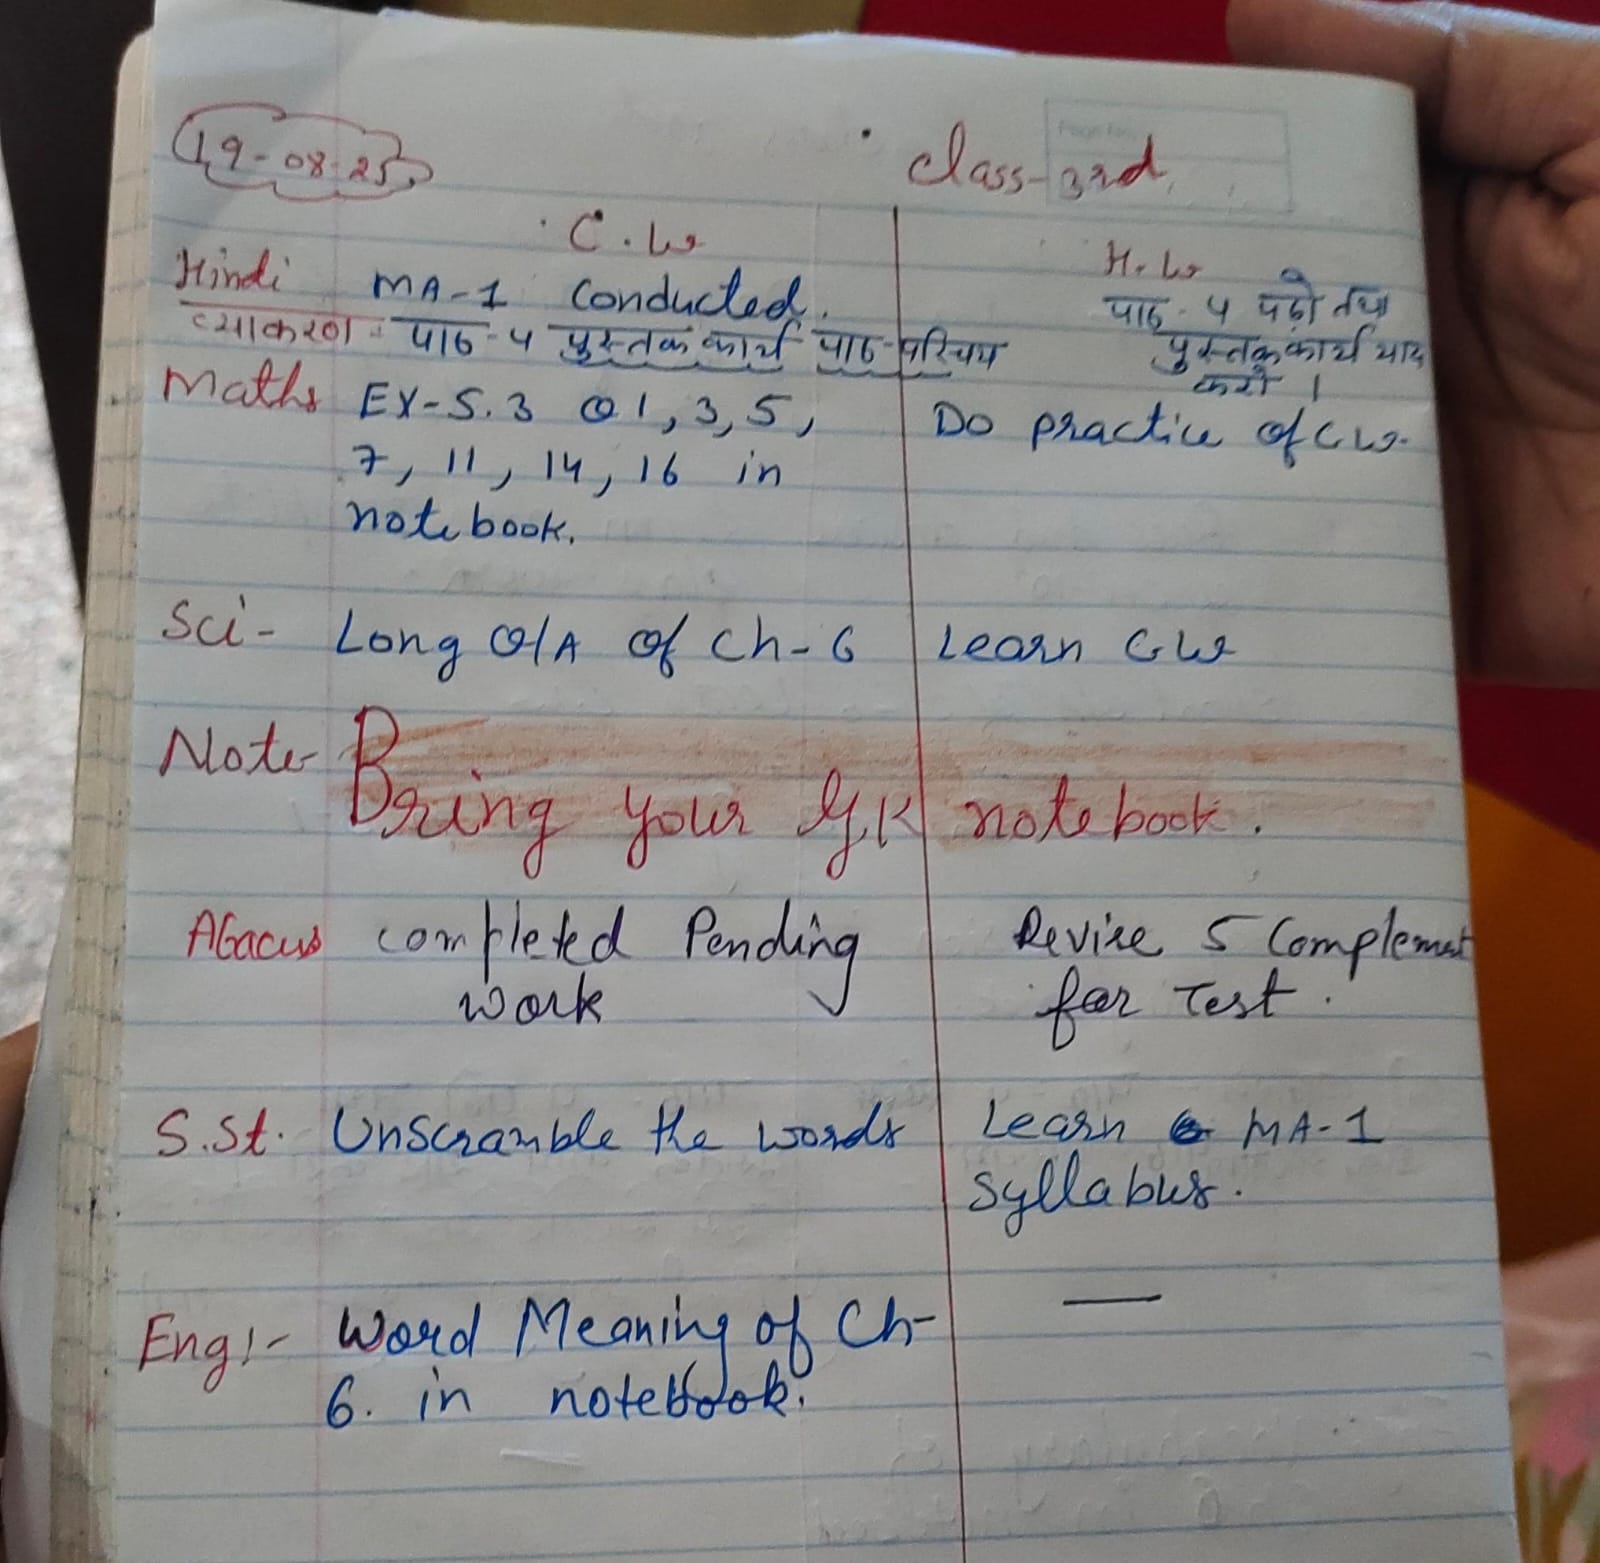 19-08-25 Class-3rd
C.W H.W
Hindi MA-1 Conducted. पाठ-५ पढ़ो तथा
व्याकरण - पाठ-५ पुस्तक कार्य पाठ-परिचय पुस्तक कार्य याद
करो ।
Maths EX-5.3 Q1, 3, 5, Do practice of C.W.
7, 11, 14, 16 in
notebook.
Sci- Long Q/A of Ch-6 Learn C.W
Note- Bring your G.K notebook.
Abacus completed Pending Revise 5 Complement
work for Test.
S.St. Unscramble the words Learn MA-1
syllabus.
Eng:- Word Meaning of Ch- —
6. in notebook.